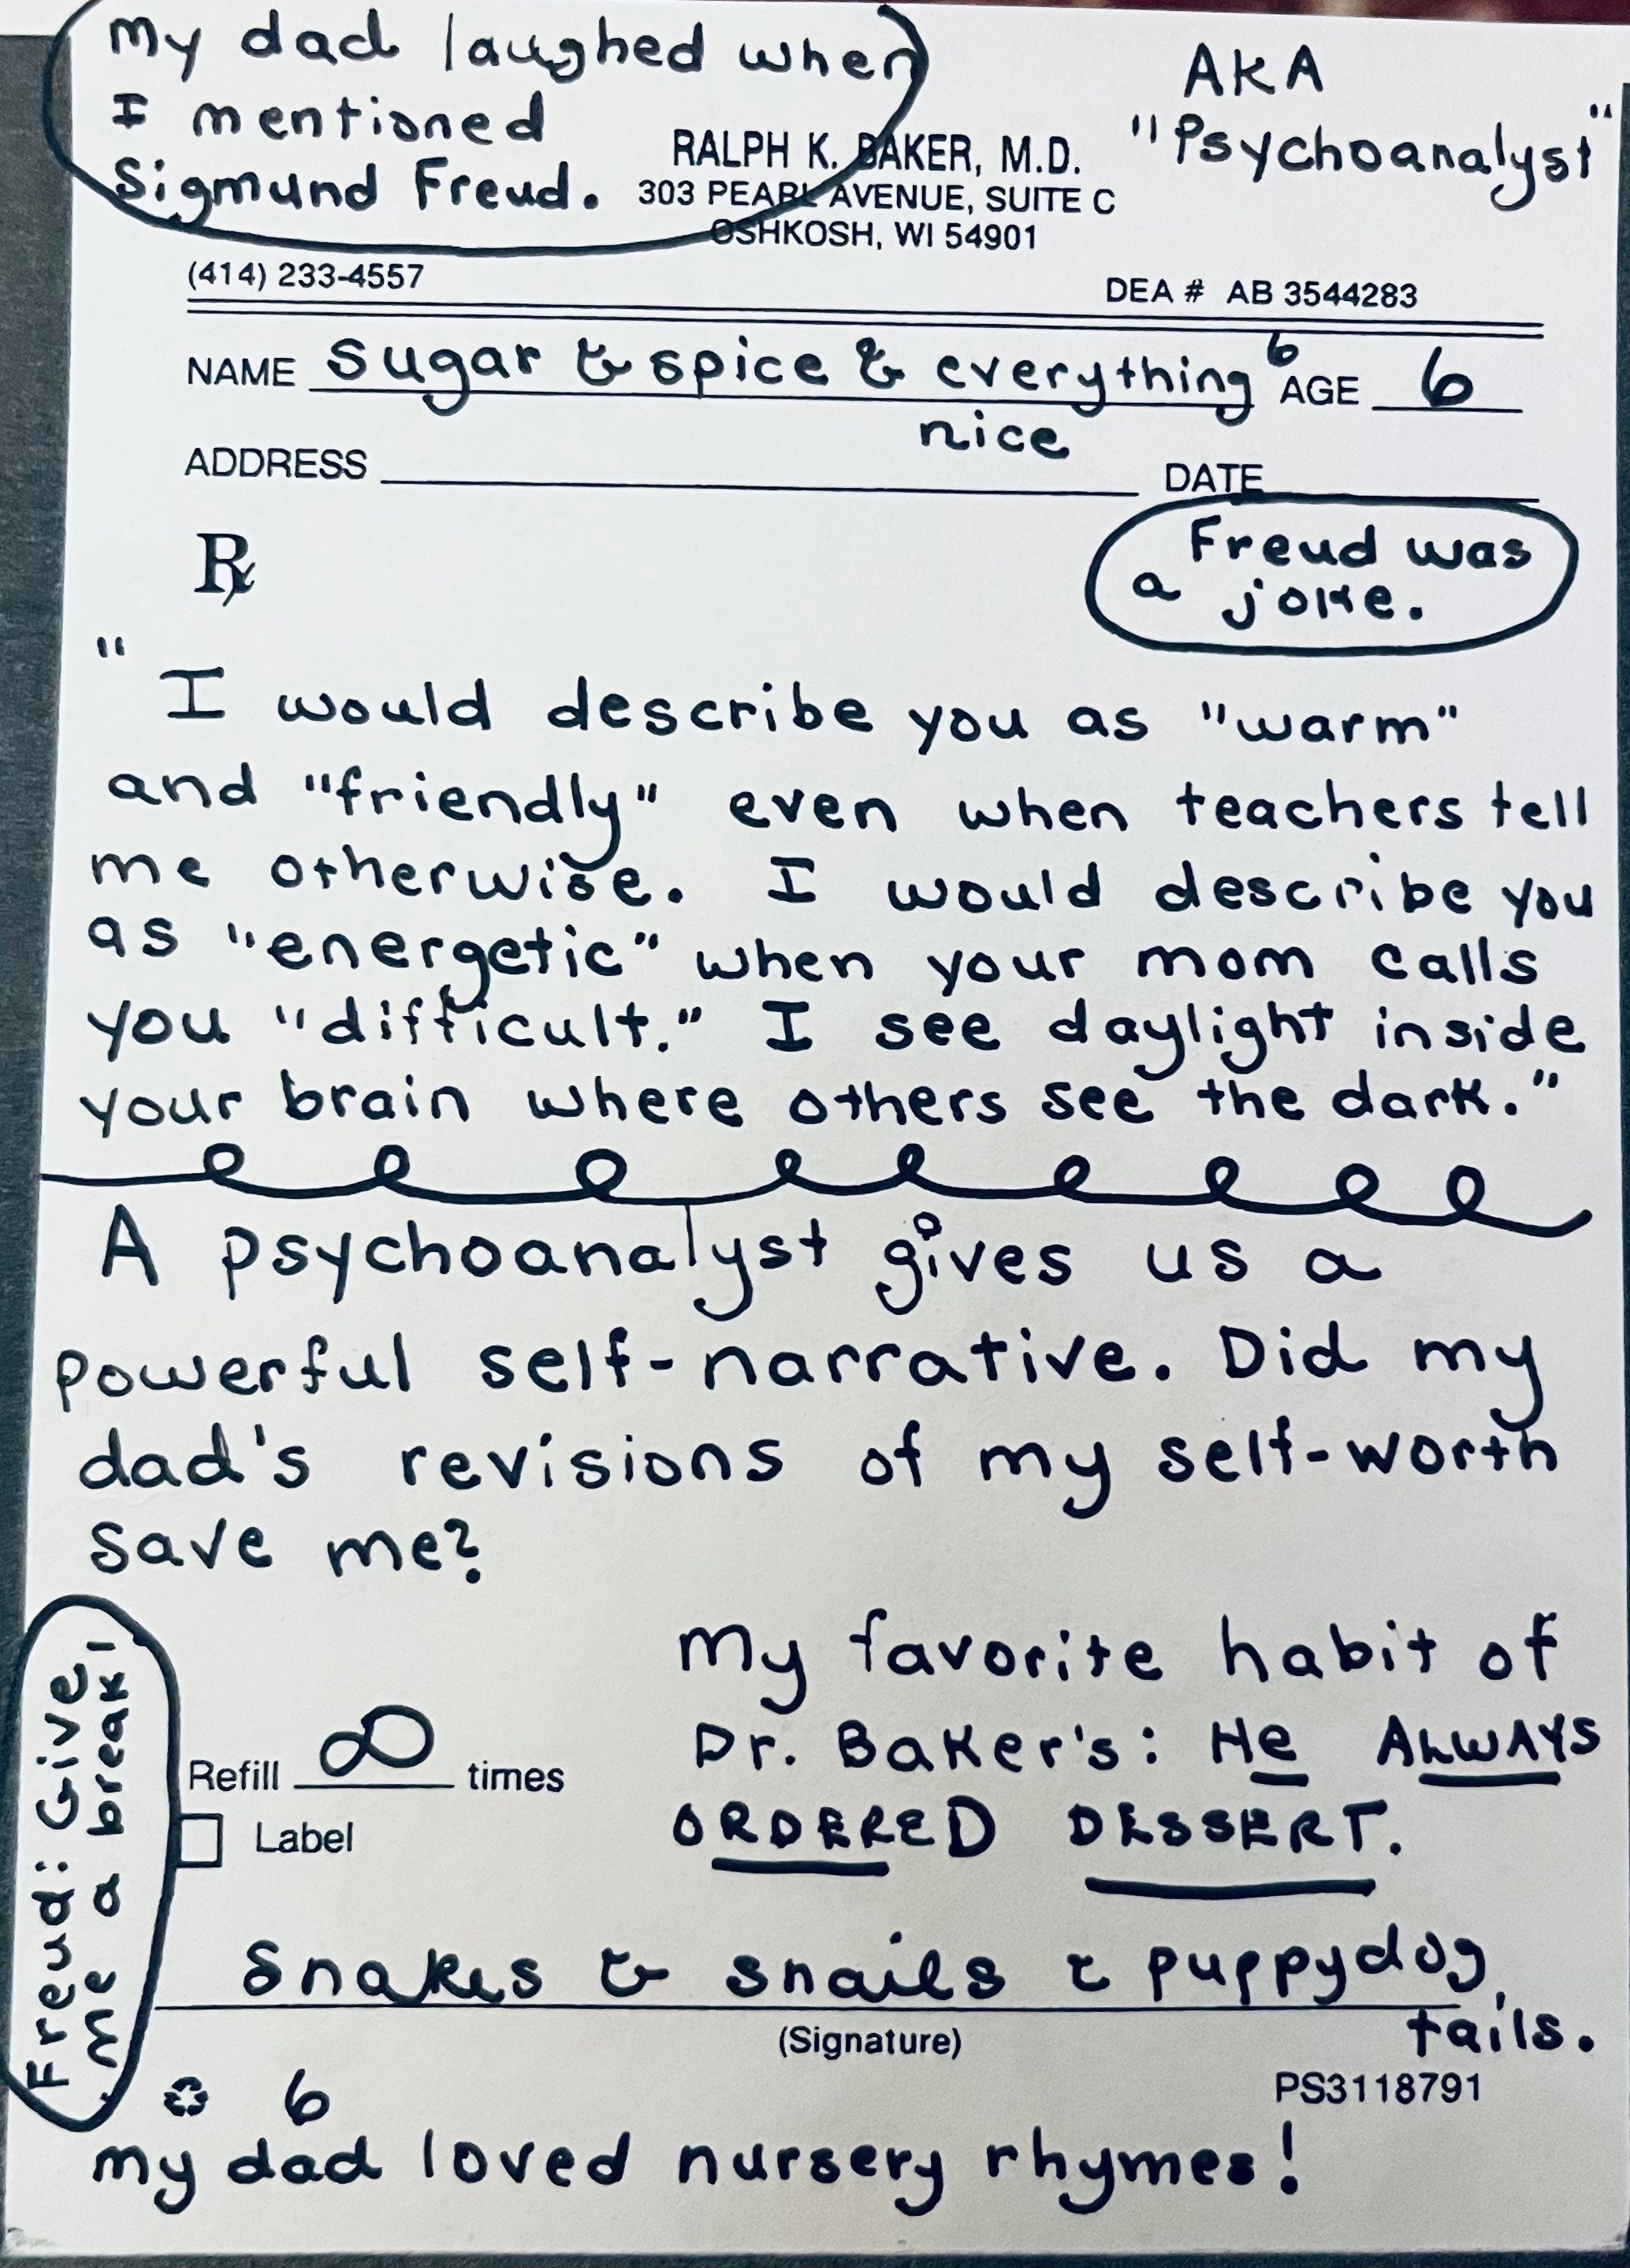 My dad laughed when
I mentioned
Sigmund Freud.
AKA
"Psychoanalyst"
RALPH K. BAKER, M.D.
303 PEARL AVENUE, SUITE C
OSHKOSH, WI 54901
(414) 233-4557
DEA # AB 3544283
NAME Sugar & spice & everything 6 AGE 6
nice
ADDRESS DATE
Rx
Freud was
a joke.
"I would describe you as "warm"
and "friendly" even when teachers tell
me otherwise. I would describe you
as "energetic" when your mom calls
you "difficult." I see daylight inside
your brain where others see the dark."
A psychoanalyst gives us a
powerful self-narrative. Did my
dad's revisions of my self-worth
save me?
Freud: Give
me a break!
My favorite habit of
Dr. Baker's: He ALWAYS
ORDERED DESSERT.
Refill ∞ times
Label
Snakes & snails & puppydog
tails.
(Signature)
PS3118791
6
My dad loved nursery rhymes!